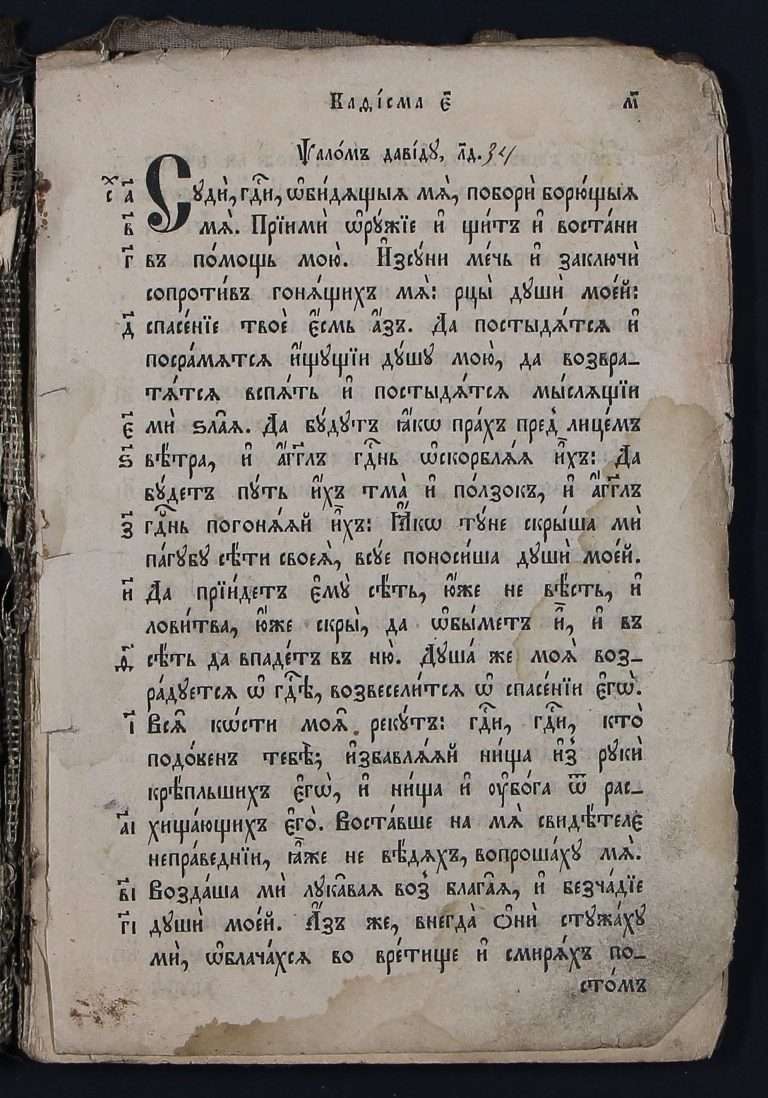 Каѳі́сма є҃ м҃
Ѱало́мъ даві́ду, л҃д. 34
Х҃С а҃ Сꙋдѝ, гдⷭ҇и, ѡ҆би́дѧщыѧ мѧ̀, поборѝ борю́щыѧ
в҃ мѧ̀. Прїимѝ ѻ҆рꙋ́жїе и҆ щи́тъ и҆ воста́ни
г҃ въ по́мощь мою̀. И҆зсꙋ́ни ме́чь и҆ заключѝ
сопроти́въ гонѧ́щихъ мѧ̀: рцы̀ дꙋшѝ мое́й:
д҃ спасе́нїе твоѐ є҆́смь а҆́зъ. Да постыдѧ́тсѧ и҆
посра́мѧтсѧ и҆́щꙋщїи дꙋ́шꙋ мою̀, да возвра-
тѧ́тсѧ вспѧ́ть и҆ постыдѧ́тсѧ мы́слѧщїи
є҃ мѝ ѕла̑ѧ. Да бꙋ́дꙋтъ ꙗ҆́кѡ пра́хъ пред̾ лице́мъ
ѕ҃ вѣ́тра, и҆ а҆́гг҃лъ гдⷭ҇нь ѡ҆скорблѧ́ѧ и҆̀хъ: Да
бꙋ́детъ пꙋ́ть и҆́хъ тма̀ и҆ по́лзокъ, и҆ а҆́гг҃лъ
з҃ гдⷭ҇нь погонѧ́ѧй и҆̀хъ: Ꙗ҆́кѡ тꙋ́не скры́ша мѝ
па́гꙋбꙋ сѣ́ти своеѧ̀, всꙋ́е поноси́ша дꙋшѝ мое́й.
и҃ Да прїи́детъ є҆мꙋ̀ сѣ́ть, ю҆́же не вѣ́сть, и҆
лови́тва, ю҆́же скры̀, да ѡ҆бы́метъ и҆̀, и҆ въ
ѳ҃ сѣ́ть да впаде́тъ въ ню̀. Дꙋша́ же моѧ̀ воз-
ра́дꙋетсѧ ѡ҆ гдⷭ҇ѣ, возвесели́тсѧ ѡ҆ спасе́нїи є҆гѡ̀.
і҃ Всѧ̑ кѡ́сти моѧ̑ рекꙋ́тъ: гдⷭ҇и, гдⷭ҇и, кто̀
подо́бенъ тебѣ̀; и҆збавлѧ́ѧй ни́ща и҆з̾ рꙋкѝ
крѣ́пльшихъ є҆гѡ̀, и҆ ни́ща и҆ ᲂу҆бо́га ѿ рас-
а҃і хища́ющихъ є҆го̀. Воста́вше на мѧ̀ свидѣ́телє
непра́веднїи, ꙗ҆̀же не вѣ́дѧхъ, вопроша́хꙋ мѧ̀.
в҃і Возда́ша мѝ лꙋка̑ваѧ воз̾ блага̑ѧ, и҆ безча́дїе
г҃і дꙋшѝ мое́й. А҆́зъ же, внегда̀ ѻ҆нѝ стꙋжа́хꙋ
мѝ, ѡ҆блача́хсѧ во вре́тище и҆ смирѧ́хъ по-
сто́мъ